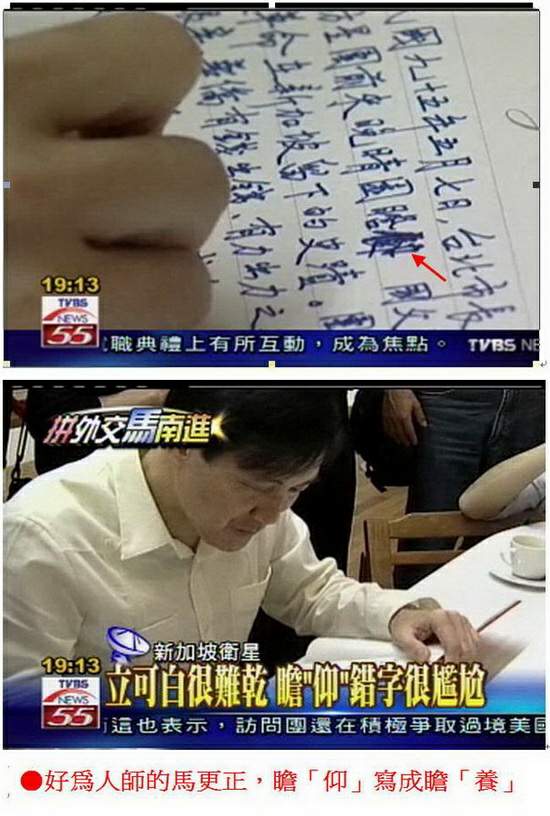 國九十五年五月七日,台北市長
星國前來晚晴園瞻 國父
革命在新加坡留下的史蹟。
華僑有錢出錢、有力出力之
19:13
TVBS
NEWS
55
職典禮上有所互動，成為焦點。 TVBS NE
拼外交馬南進
新加坡衛星
19:13
立可白很難乾 瞻"仰"錯字很尷尬
TVBS
NEWS
55
這也表示，訪問團還在積極爭取過境美國
●好為人師的馬更正，瞻「仰」寫成瞻「養」